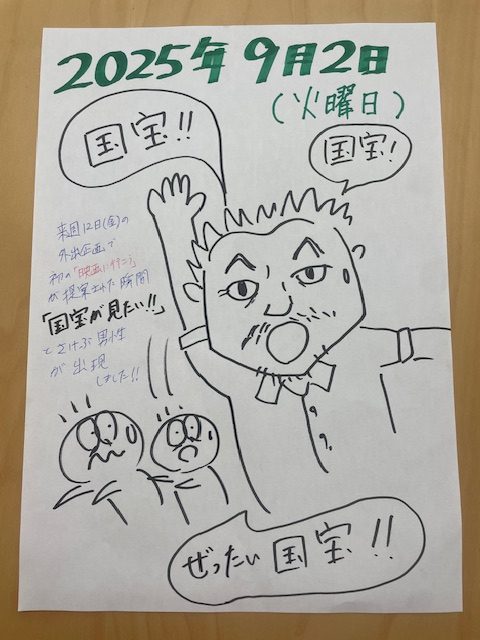 2025年 9月2日
(火曜日)
国宝!!
国宝!
来週12日(金)の
外出企画で
初の「映画に行こう」
が提案された瞬間
「国宝が見たい!!」
とさけぶ男性
が出現
しました!!
ぜったい国宝!!